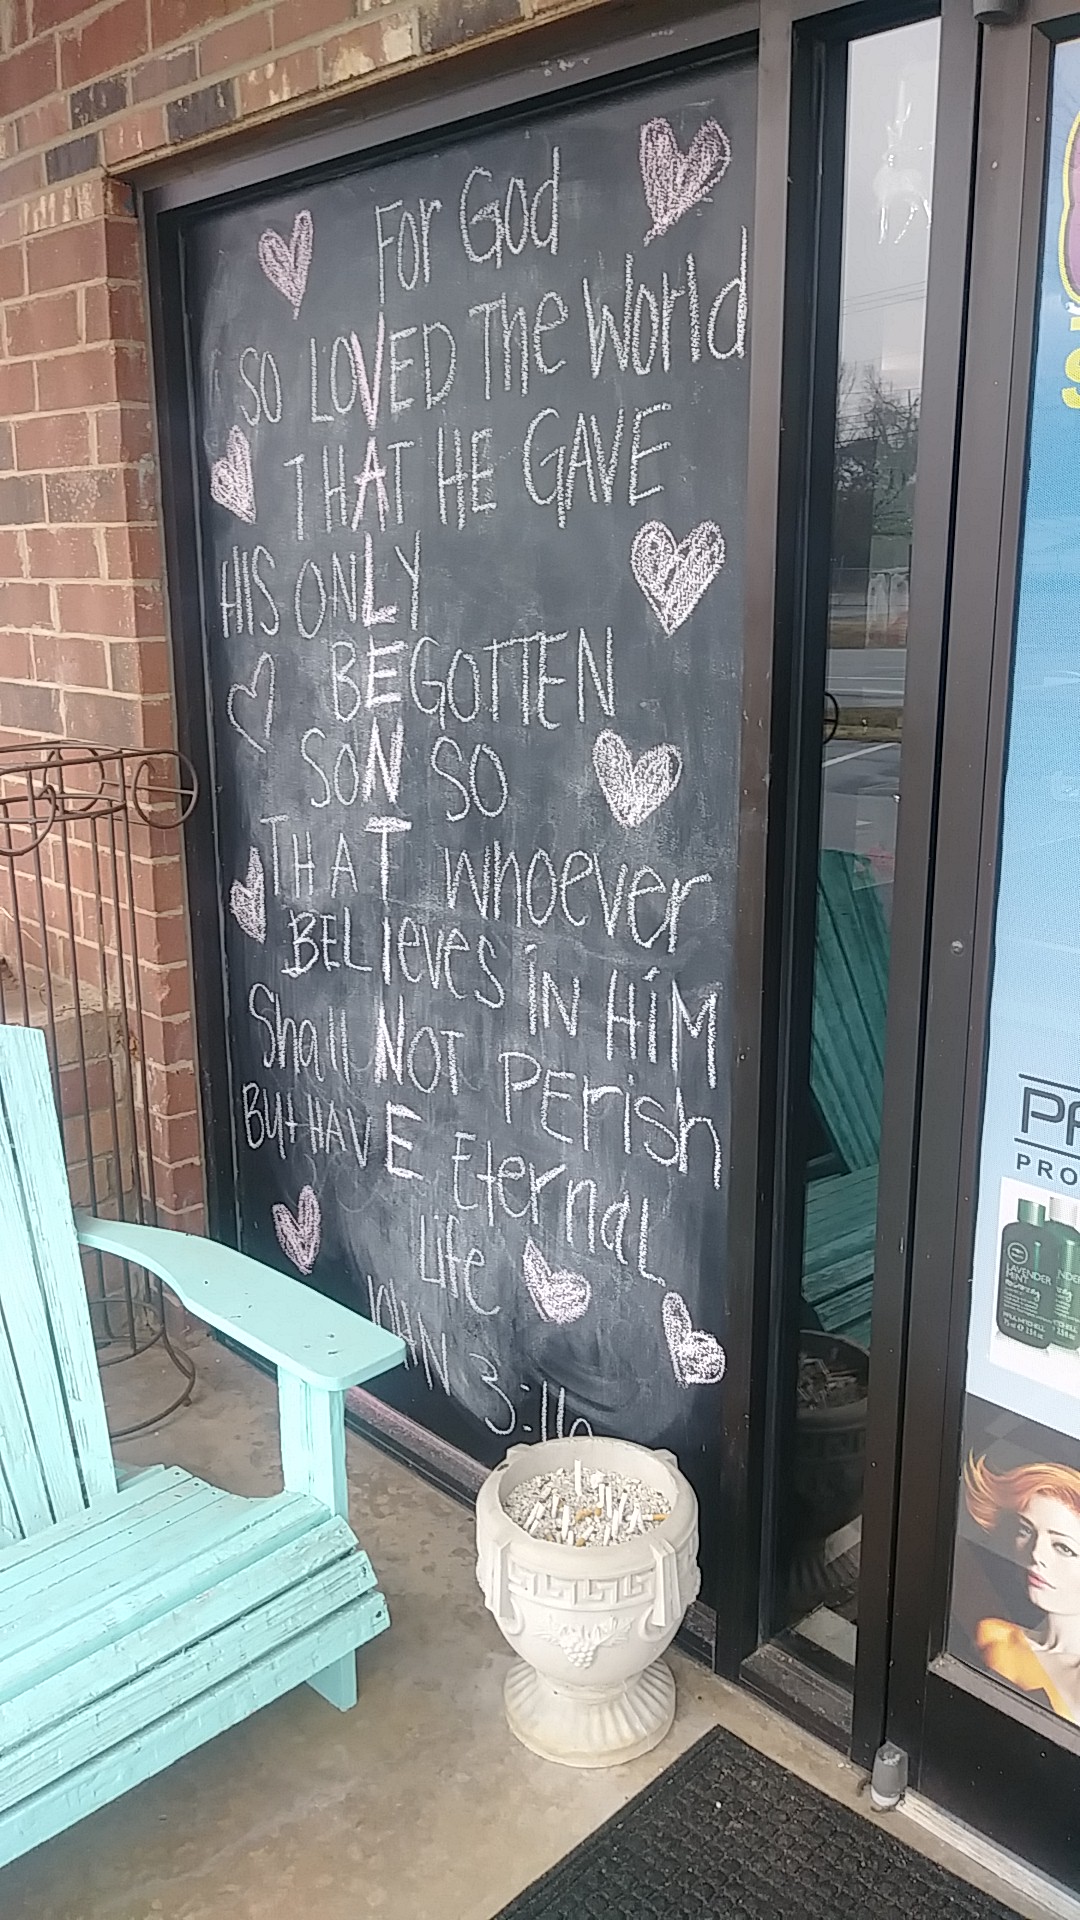 For God
SO LOVED The World
THAT HE GAVE
HIS ONLY
BEGOTTEN
SON SO
THAT whoever
BELIeves iN HiM
Shall NOT PERish
BUt HAVE EternaL
Life
JOHN 3:16
PRO
LAVENDER
MINT
PAUL MITCHELL